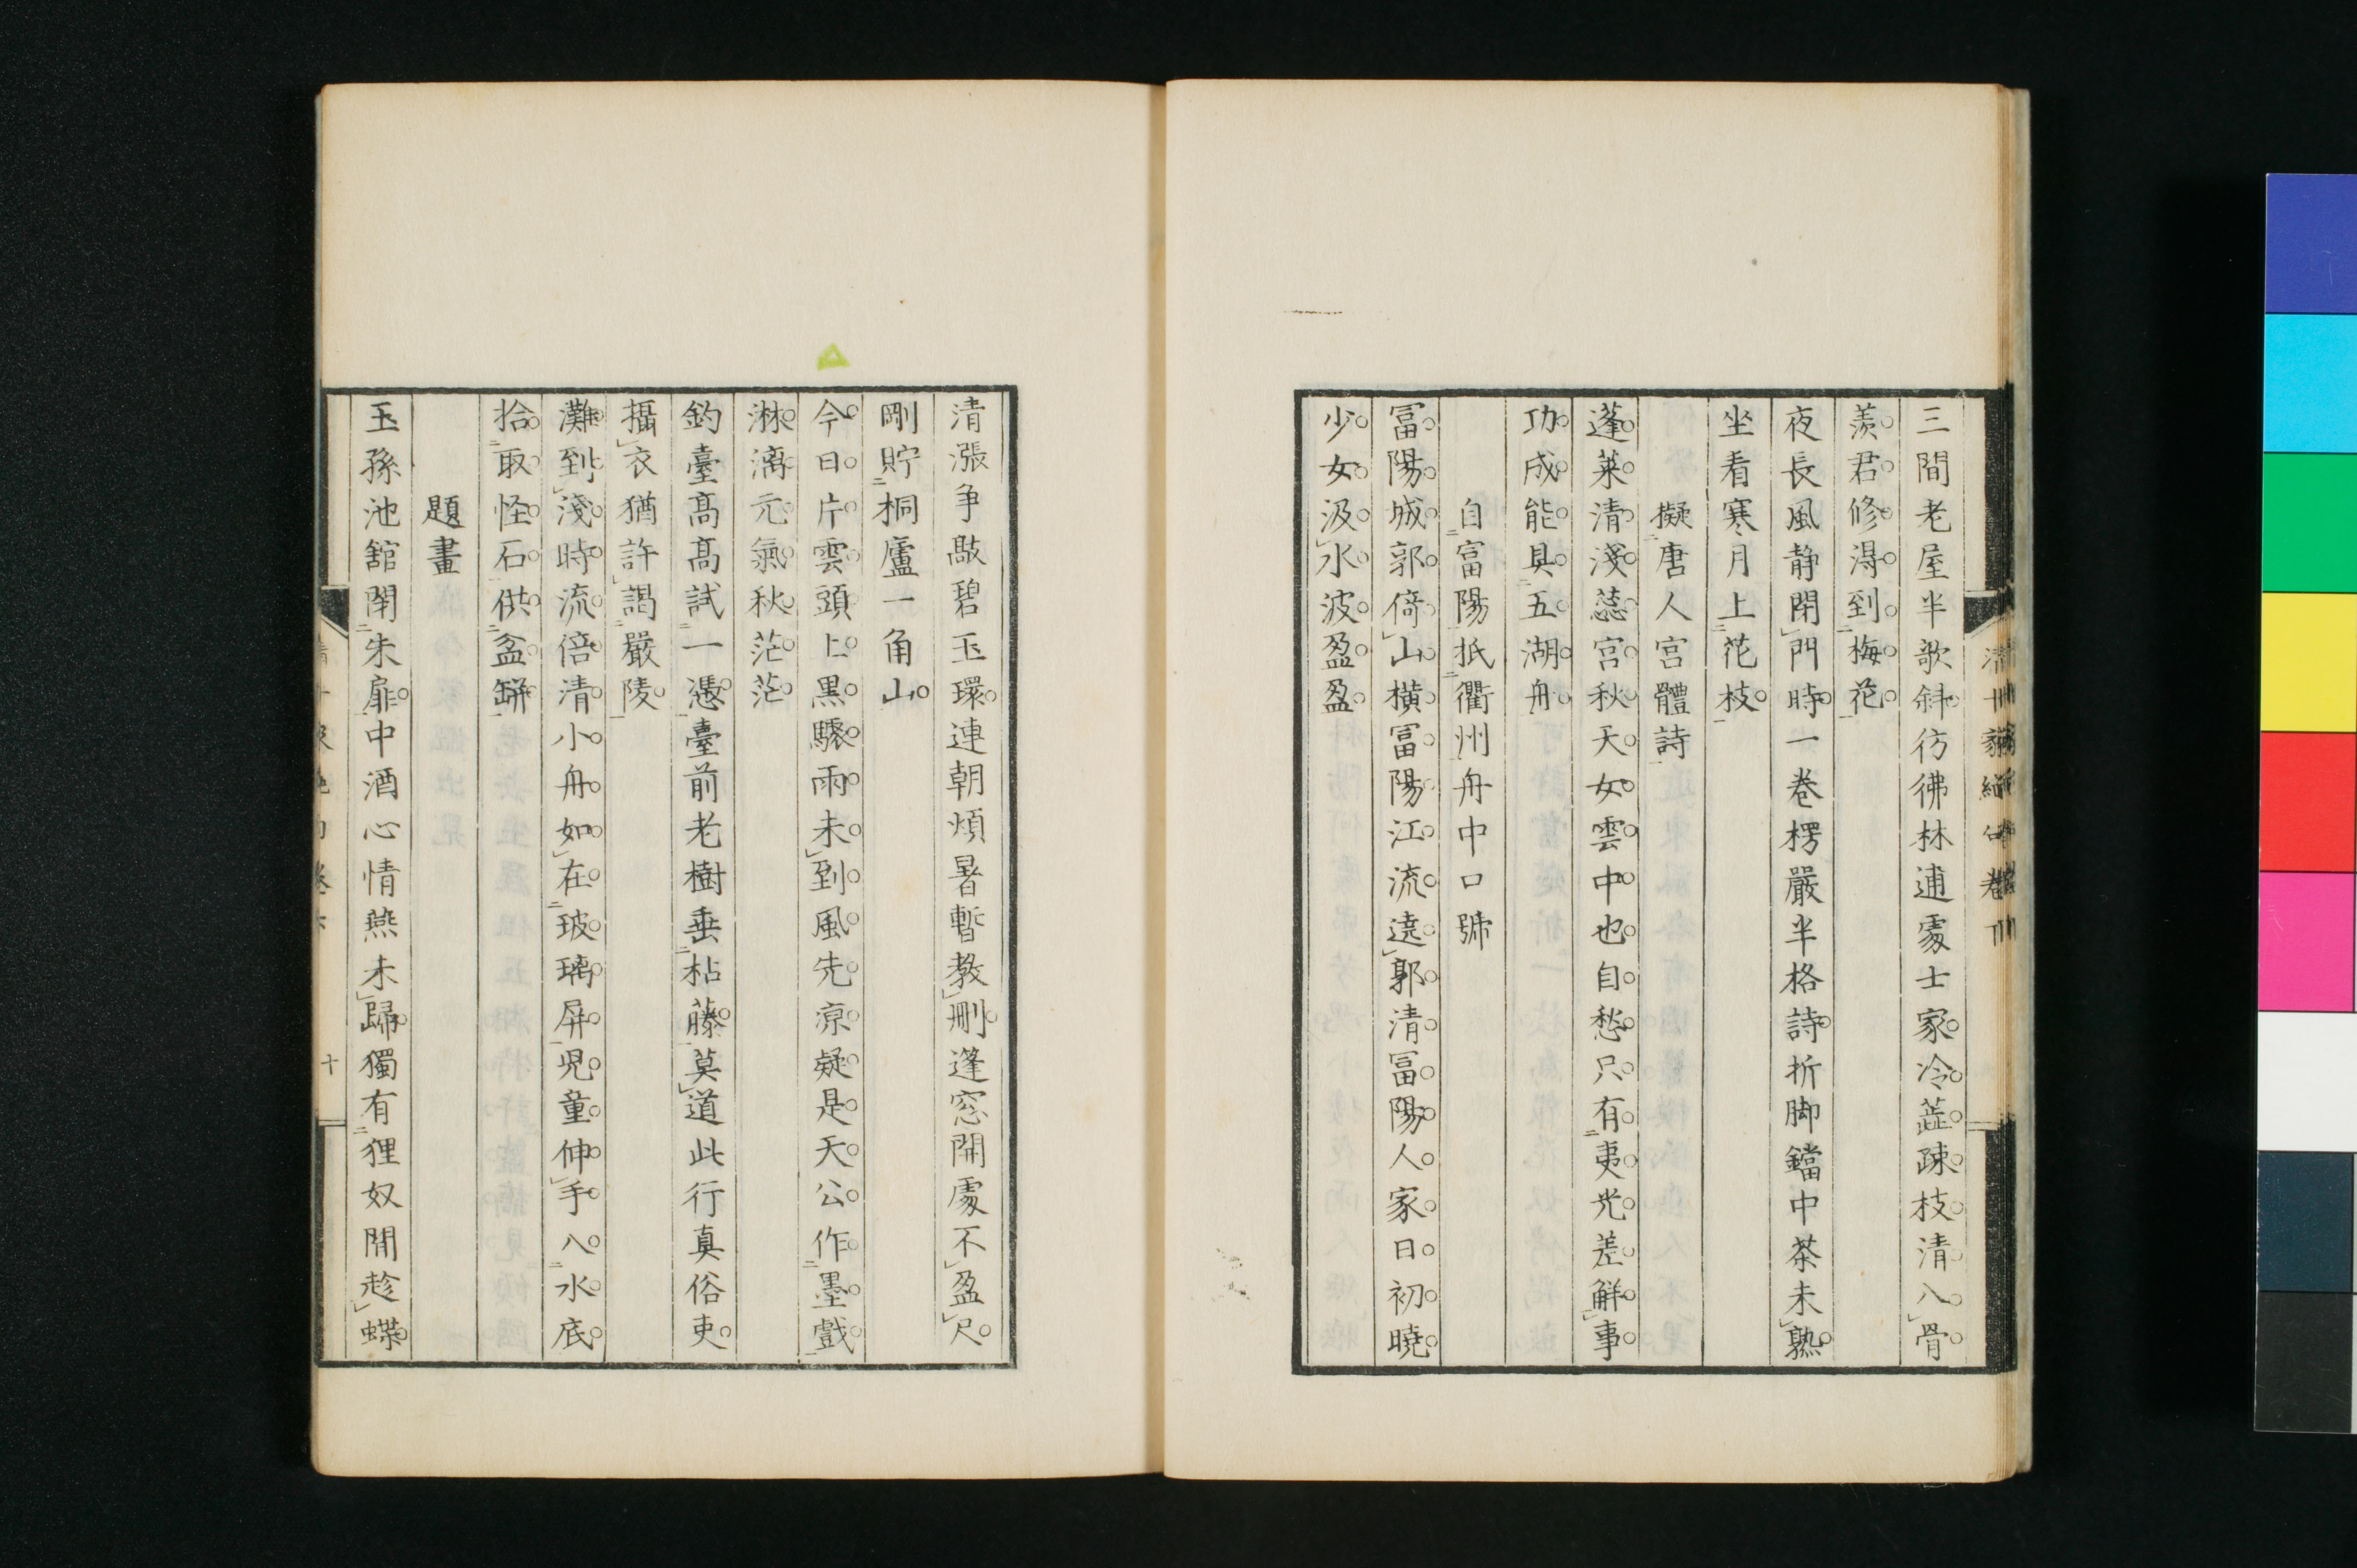 三間老屋半歌斜彷彿林逋處士家冷蕋疎枝清入骨
羨君修淂到梅花
夜長風静閉門時一巻楞嚴半格詩折脚鐺中茶未熟
坐看寒月上花枝
擬唐人宮體詩
蓬萊清淺蕊宮秋天女雲中也自愁只有夷光差解事
功成能具五湖舟
自富陽抵衢州舟中口號
冨陽城郭倚山橫冨陽江流遶郭清冨陽人家日初曉
少女汲水波盈盈
清漲争敲碧玉環連朝煩暑暫教刪篷窓開處不盈尺
剛貯桐廬一角山
今日片雲頭上黒驟雨未到風先凉疑是天公作墨戲
淋漓元氣秋茫茫
釣臺髙髙試一憑臺前老樹垂枯藤莫道此行真俗吏
攝衣猶許謁嚴陵
灘到淺時流倍清小舟如在玻璃屏児童伸手入水底
拾取怪石供盆缾
題畫
玉孫池舘閉朱扉中酒心情燕未歸獨有狸奴閒趁蝶
十